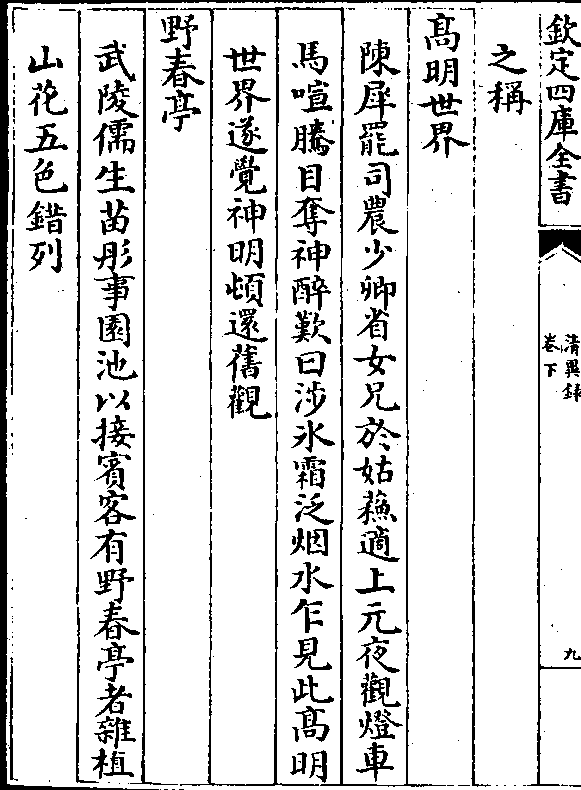 欽定四庫全書
清異錄
卷下
九
之稱
髙明世界
陳犀罷司農少卿省女兄於姑蘇適上元夜觀燈車
馬喧騰目奪神醉歎曰涉氷霜泛烟水乍見此髙明
世界遂覺神明頓還舊觀
野春亭
武陵儒生苗彤事園池以接賓客有野春亭者雜植
山花五色錯列